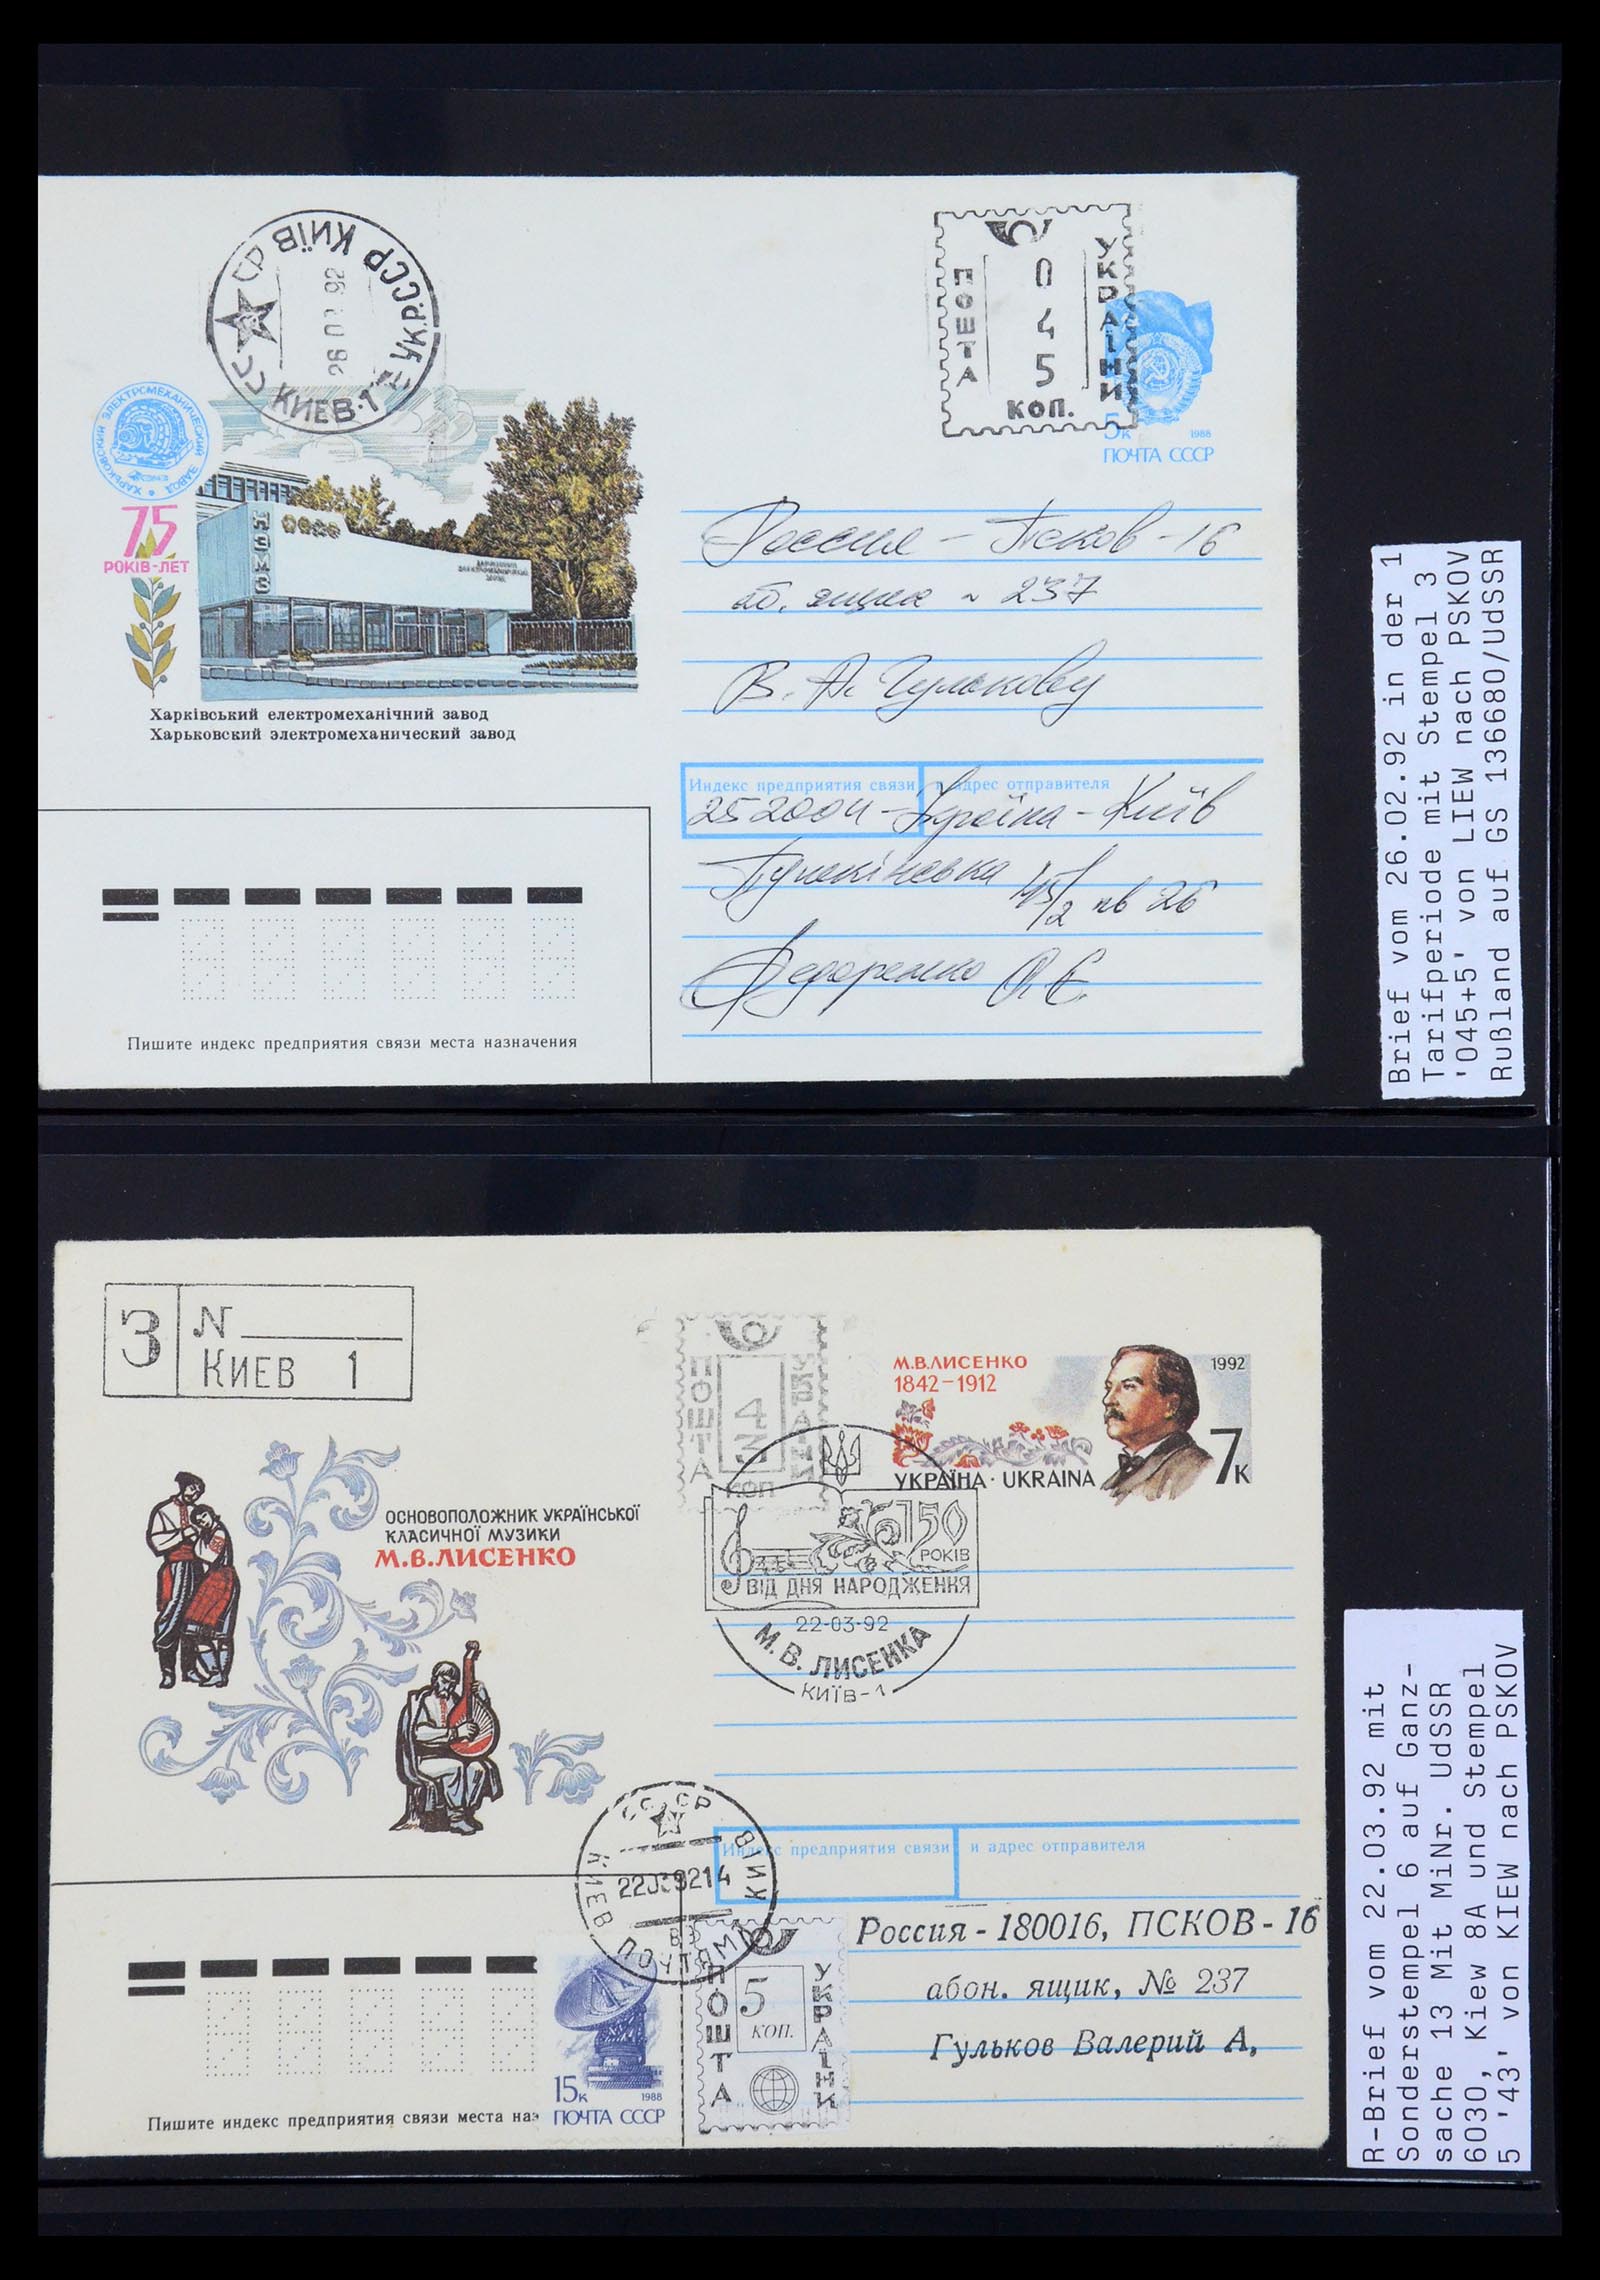 СССР КИЇВ УКР.ССР
26 02 92
КИЕВ·1
ПОШТА
УКРАЇНИ
0
4
5
коп.
5к 1988
ПОЧТА СССР
ХАРЬКОВСКИЙ ЭЛЕКТРОМЕХАНИЧЕСКИЙ ЗАВОД
75
РОКІВ-ЛЕТ
ХЭМЗ
Харківський електромеханічний завод
Харьковский электромеханический завод
Россия - Псков - 16
аб. ящик ~ 237
В. А. Гулькову
Индекс предприятия связи и адрес отправителя
252004 - Україна - Київ
Пушкінська 45/2 кв 26
Федоренко О. Є.
Пишите индекс предприятия связи места назначения
Brief vom 26.02.92 in der 1
Tarifperiode mit Stempel 3
'045+5' von LIEW nach PSKOV
Rußland auf GS 136680/UdSSR
З N
КИЕВ 1
ПОШТА
УКРАЇНИ
43
КОП
М.В.ЛИСЕНКО
1842-1912
1992
7к
УКРАЇНА · UKRAINA
ОСНОВОПОЛОЖНИК УКРАЇНСЬКОЇ
КЛАСИЧНОЇ МУЗИКИ
М.В.ЛИСЕНКО
150
РОКІВ
ВІД ДНЯ НАРОДЖЕННЯ
22-03-92
М.В. ЛИСЕНКА
КИЇВ-1
СССР
КИЇВ
22039214
КИЕВ ПОЧТАМТ
Индекс предприятия связи и адрес отправителя
Россия - 180016, ПСКОВ - 16
абон. ящик, № 237
Гульков Валерий А,
15к 1988
ПОЧТА СССР
ПОШТА
УКРАЇНИ
5
коп.
Пишите индекс предприятия связи места наз
R-Brief vom 22.03.92 mit
Sonderstempel 6 auf Ganz-
sache 13 Mit MiNr. UdSSR
6030, Kiew 8A und Stempel
5 '43' von KIEW nach PSKOV